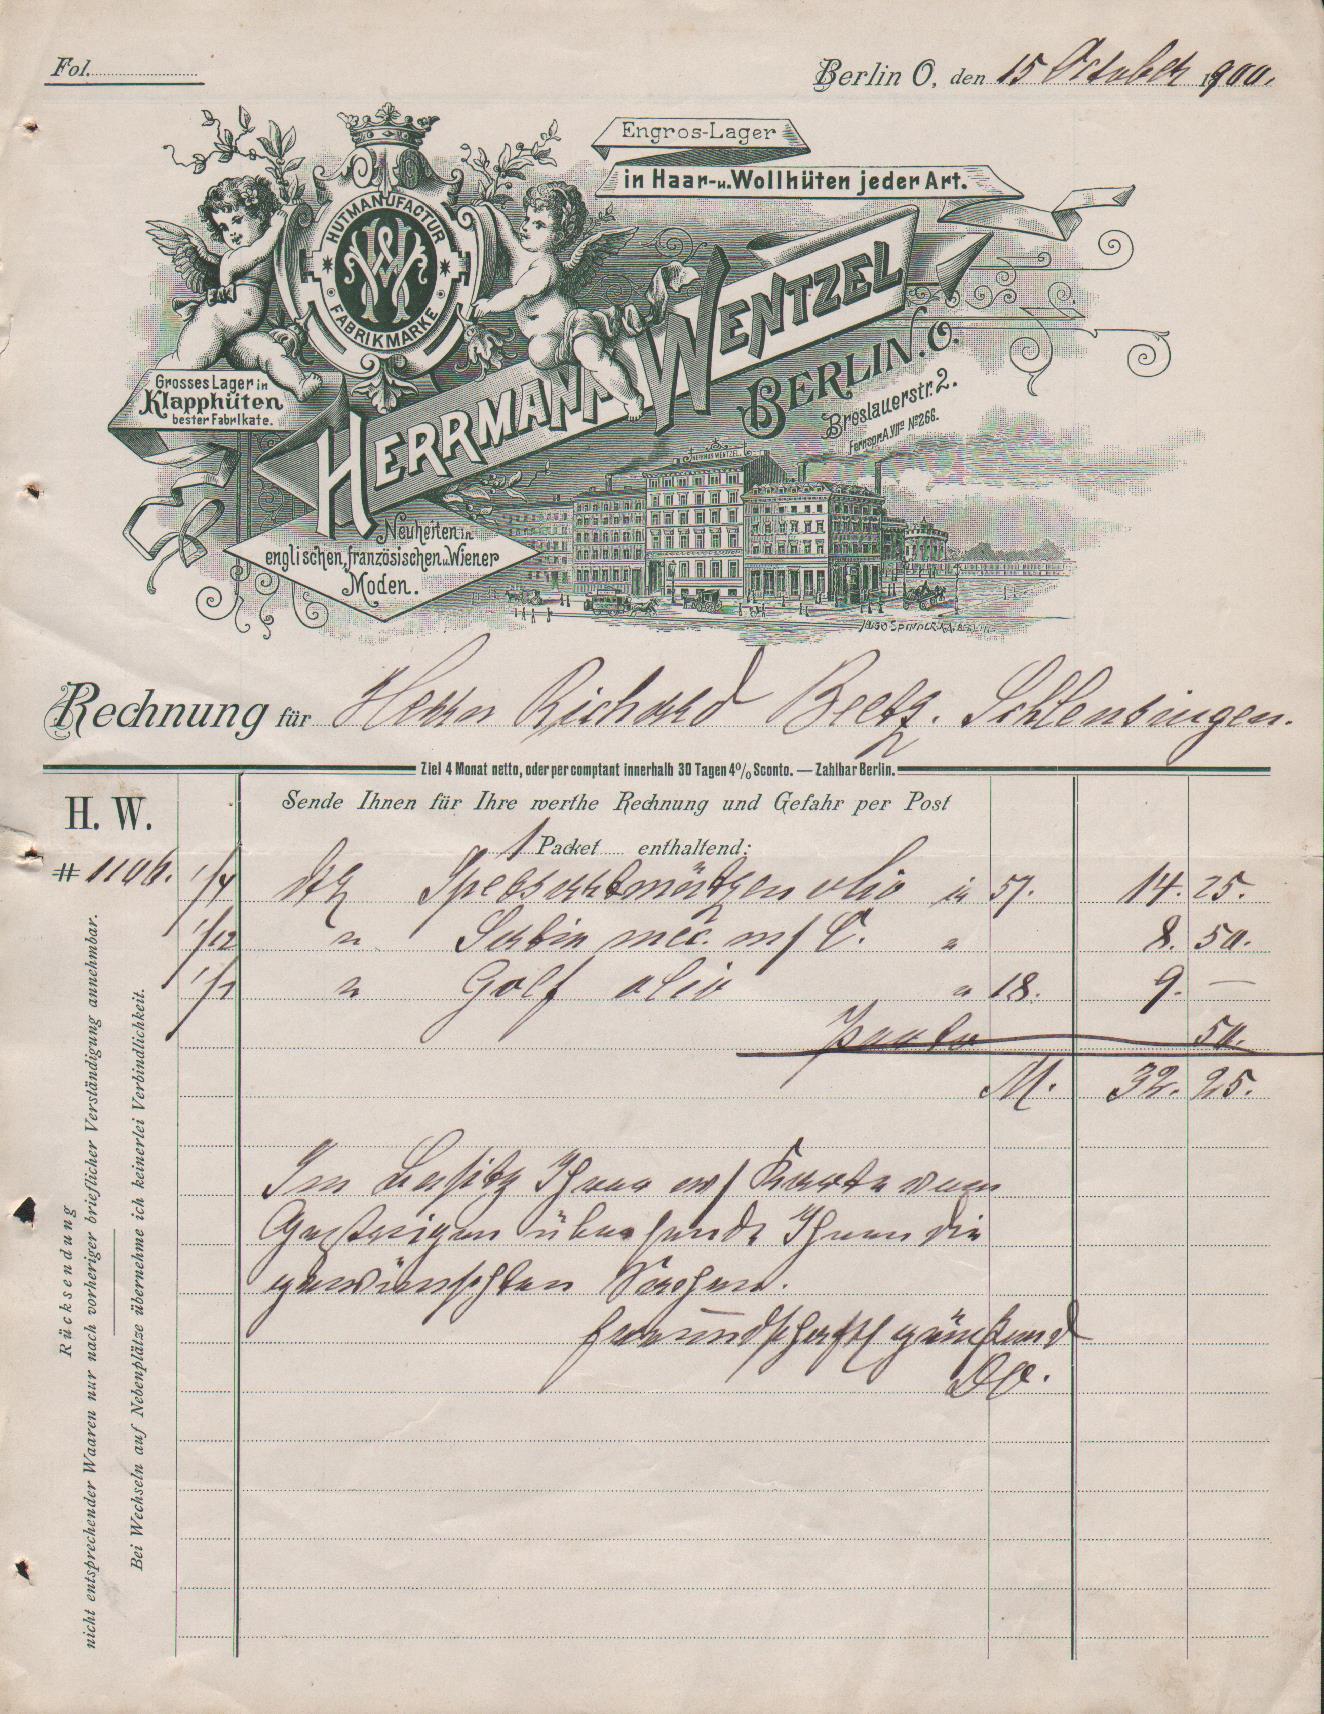 Fol.
Berlin O, den 15 October 1900.
Engros-Lager
in Haar- u. Wollhüten jeder Art.
HUTMANUFACTUR
HW
FABRIKMARKE
Grosses Lager in
Klapphüten
bester Fabrikate.
HERRMANN WENTZEL
BERLIN. O.
Breslauerstr. 2.
Fernspr. A. VIIa No 266.
HERRMAN WENTZEL
Neuheiten in
englischen, französischen u. Wiener
Moden.
Rechnung für Herrn Richard Beetz. Schleusingen.
Ziel 4 Monat netto, oder per comptant innerhalb 30 Tagen 4% Sconto. — Zahlbar Berlin.
H. W.
Sende Ihnen für Ihre werthe Rechnung und Gefahr per Post
1 Packet enthaltend:
# 1106. 1/4 Dtz olio in 57. 14. 25.
1/12 " mec. m/ C. " 8. 50.
1/2 " Golf olio " 18. 9. —
Porto 50.
M. 32. 25.
Im Besitz Ihrer w/ Karte vom
Gestrigen übersende Ihnen die
gewünschten Sachen.
freundschaftl grüßend
Do.
Rücksendung
nicht entsprechender Waaren nur nach vorheriger brieflicher Verständigung annehmbar.
Bei Wechseln auf Nebenplätze übernehme ich keinerlei Verbindlichkeit.